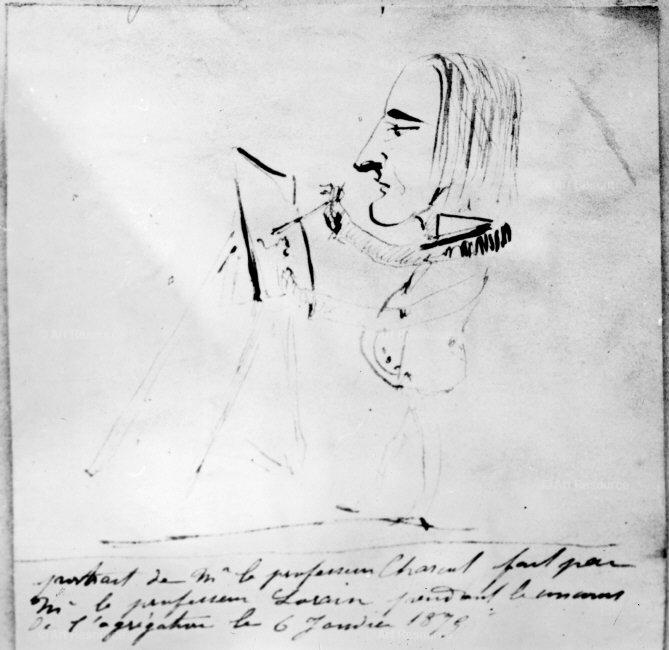 portrait de Mr le professeur Charcot fait par
Mr le professeur Lorain pendant le concours
de l'agrégation le 6 Janvier 1875
Art Resource